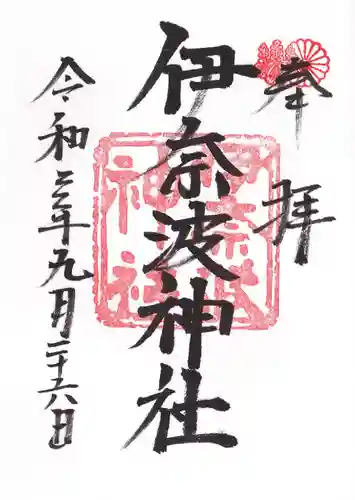 奉拝
伊奈波神社
伊奈波
神社
令和三年九月二十六日